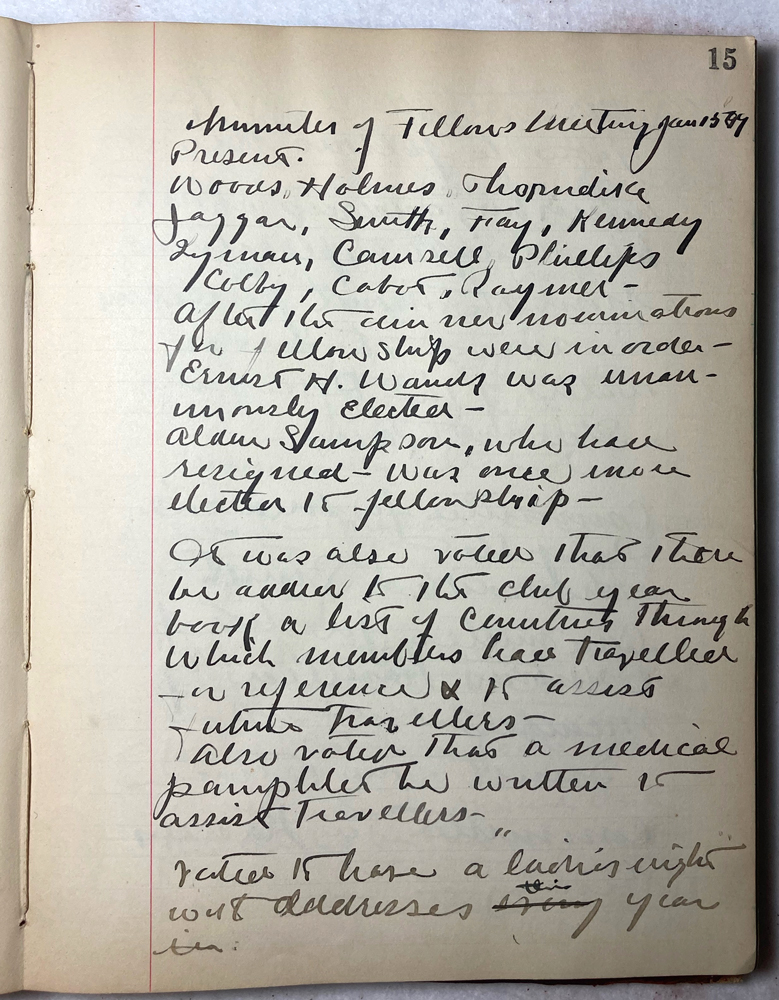 15
Minutes of Fellows Meeting Jan 15
Present.
Woods, Holmes, Thorndike
Jaggar, Smith, Fay, Kennedy
Lyman, Camsell, Phillips
Colby, Cabot, Raymer -
After the dinner nominations
for fellowship were in order -
Ernest H. was unan-
imously elected -
Alden Sampson, who had
resigned - was once more
elected to fellowship -
It was also voted that there
be added to the club year
book a list of countries through
which members have travelled
for reference & to assist
future travellers -
Also voted that a medical
pamphlet be written to
assist travellers -
Voted to have a "ladies night"
with addresses every this year